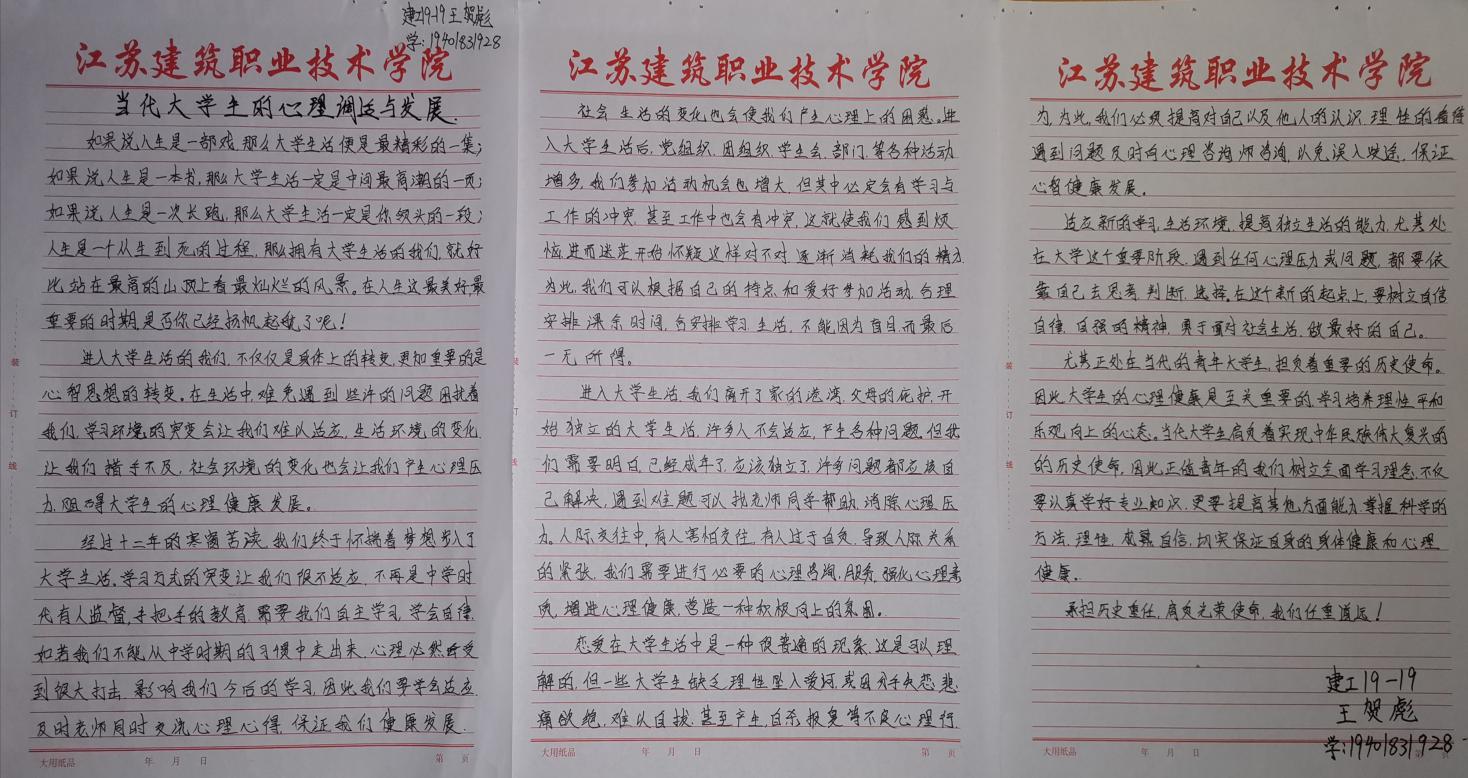 建工19-19 王贺彪
学:19401831928
江苏建筑职业技术学院
当代大学生的心理调适与发展.
如果说人生是一部戏,那么大学生活便是最精彩的一集;
如果说人生是一本书,那么大学生活一定是中间最高潮的一页;
如果说人生是一次长跑,那么大学生活一定是你领头的一段;
人生是一个从生到死的过程,那么拥有大学生活的我们,就好
比站在最高的山顶上看最灿烂的风景。在人生这最美好最
重要的时期,是否你已经扬帆起航了呢!
进入大学生活的我们,不仅仅是身体上的转变,更加重要的是
心智思想的转变。在生活中,难免遇到些许的问题困扰着
我们,学习环境的突变会让我们难以适应,生活环境的变化
让我们措手不及,社会环境的变化也会让我们产生心理压
力,阻碍大学生的心理健康发展。
经过十二年的寒窗苦读,我们终于怀揣着梦想步入了
大学生活。学习方式的突变让我们很不适应,不再是中学时
代有人监督,手把手的教育,需要我们自主学习,学会自律,
如若我们不能从中学时期的习惯中走出来,心理必然受
到很大打击,影响我们今后的学习,因此我们要学会适应,
及时老师同时交流心理心得,保证我们健康发展.
大用纸品 年 月 日 第 页
装
订
线
江苏建筑职业技术学院
社会生活的变化也会使我们产生心理上的困惑。进
入大学生活后,党组织,团组织,学生会,部门,等各种活动
增多,我们参加活动机会也增大,但其中必定会有学习与
工作的冲突,甚至工作中也会有冲突,这就使我们感到烦
恼,进而迷茫开始怀疑这样对不对,逐渐消耗我们的精力
为此,我们可以根据自己的特点和爱好参加活动,合理
安排课余时间,合安排学习生活,不能因为盲目而最后
一无所得。
进入大学生活,我们离开了家的港湾,父母的庇护,开
始独立的大学生活,许多人不会适应,产生各种问题,但我
们需要明白,已经成年了,应该独立了,许多问题都应该自
己解决,遇到难题可以找老师同学帮助,消除心理压
力。人际交往中,有人害怕交往,有人过于自负,导致人际关系
的紧张,我们需要进行必要的心理咨询,服务,强化心理素
质,增进心理健康,营造一种积极向上的氛围。
恋爱在大学生活中是一种很普遍的现象,这是可以理
解的,但一些大学生缺乏理性坠入爱河,或因分手失恋悲
痛欲绝,难以自拔,甚至产生,自杀,报复等不良心理行
大用纸品 年 月 日 第 页
订
线
江苏建筑职业技术学院
为,为此,我们必须提高对自己以及他人的认识,理性的看待
遇到问题及时向心理咨询师咨询,以免误入歧途,保证
心智健康发展。
适应新的学习,生活环境,提高独立生活的能力,尤其处
在大学这个重要阶段,遇到任何心理压力或问题,都要依
靠自己去思考,判断,选择。在这个新的起点上,要树立自信
自律,自强的精神,勇于面对社会生活,做最好的自己。
尤其正处在当代的青年大学生,担负着重要的历史使命。
因此,大学生的心理健康是至关重要的,学习培养理性平和
乐观向上的心态。当代大学生肩负着实现中华民族伟大复兴的
的历史使命,因此,正值青年的我们树立全面学习理念,不仅
要认真学好专业知识,更要提高其他方面能力,掌握科学的
方法,理性,成熟,自信,切实保证自身的身体健康和心理
健康。
承担历史重任,肩负光荣使命,我们任重道远!
建工19-19
王贺彪
学:19401831928
大用纸品 年 月 日
装
订
线